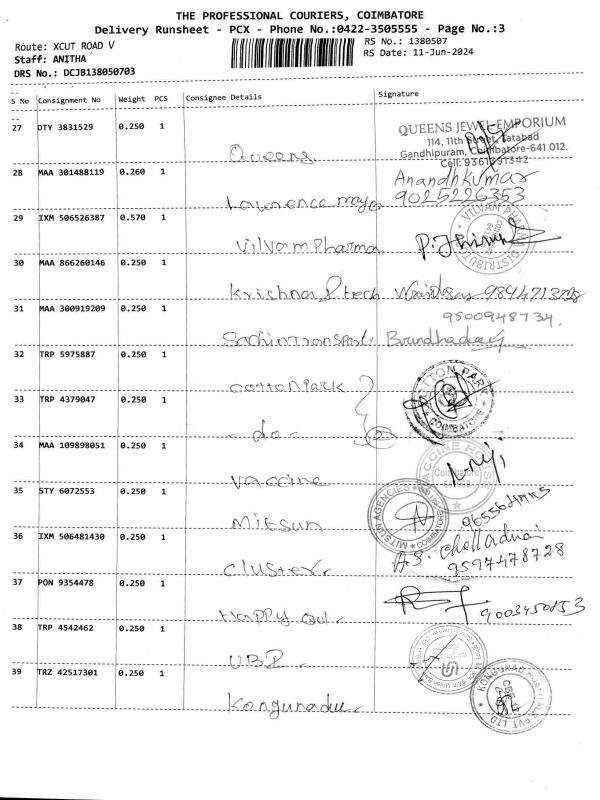 THE PROFESSIONAL COURIERS, COIMBATORE
Delivery Runsheet - PCX - Phone No.:0422-3505555 - Page No.:3
Route: XCUT ROAD V
RS No.: 1380507
Staff: ANITHA
RS Date: 11-Jun-2024
DRS No.: DCJB138050703
S No Consignment No Weight PCS Consignee Details Signature
27 OTY 3831529 0.250 1
QUEENS JEWEL EMPORIUM
114, 11th Street, Tatabad
Gandhipuram, Coimbatore-641 012.
Cell: 9361391342
Queens
28 MAA 301488119 0.260 1 Anandhkumar
Lawrence mayo 9025226353
29 IXM 506526387 0.570 1
VILVAM PHARMA DISTRIBUTORS
Vilvam Pharma
30 MAA 866260146 0.250 1
Krishna & tech
31 MAA 300919209 0.250 1 9500948734.
32 TRP 5975887 0.250 1
Cotton Park
COTTON PARK COIMBATORE
33 TRP 4379047 0.250 1
- do - 2
34 MAA 109898051 0.250 1
Vaccine
VACCINE HOUSE
35 STY 6072553 0.250 1
Mitsun
MITSUN AGENCIES COIMBATORE
36 IXM 506481430 0.250 1 A.S. Chelladurai
Cluster. 9597478728
37 PON 9354478 0.250 1
Happy 9003450153
38 TRP 4542462 0.250 1
UBI.
39 TRZ 42517301 0.250 1
KONGUNAD HOSPITALS PVT LTD
CBE
Kongunadu.